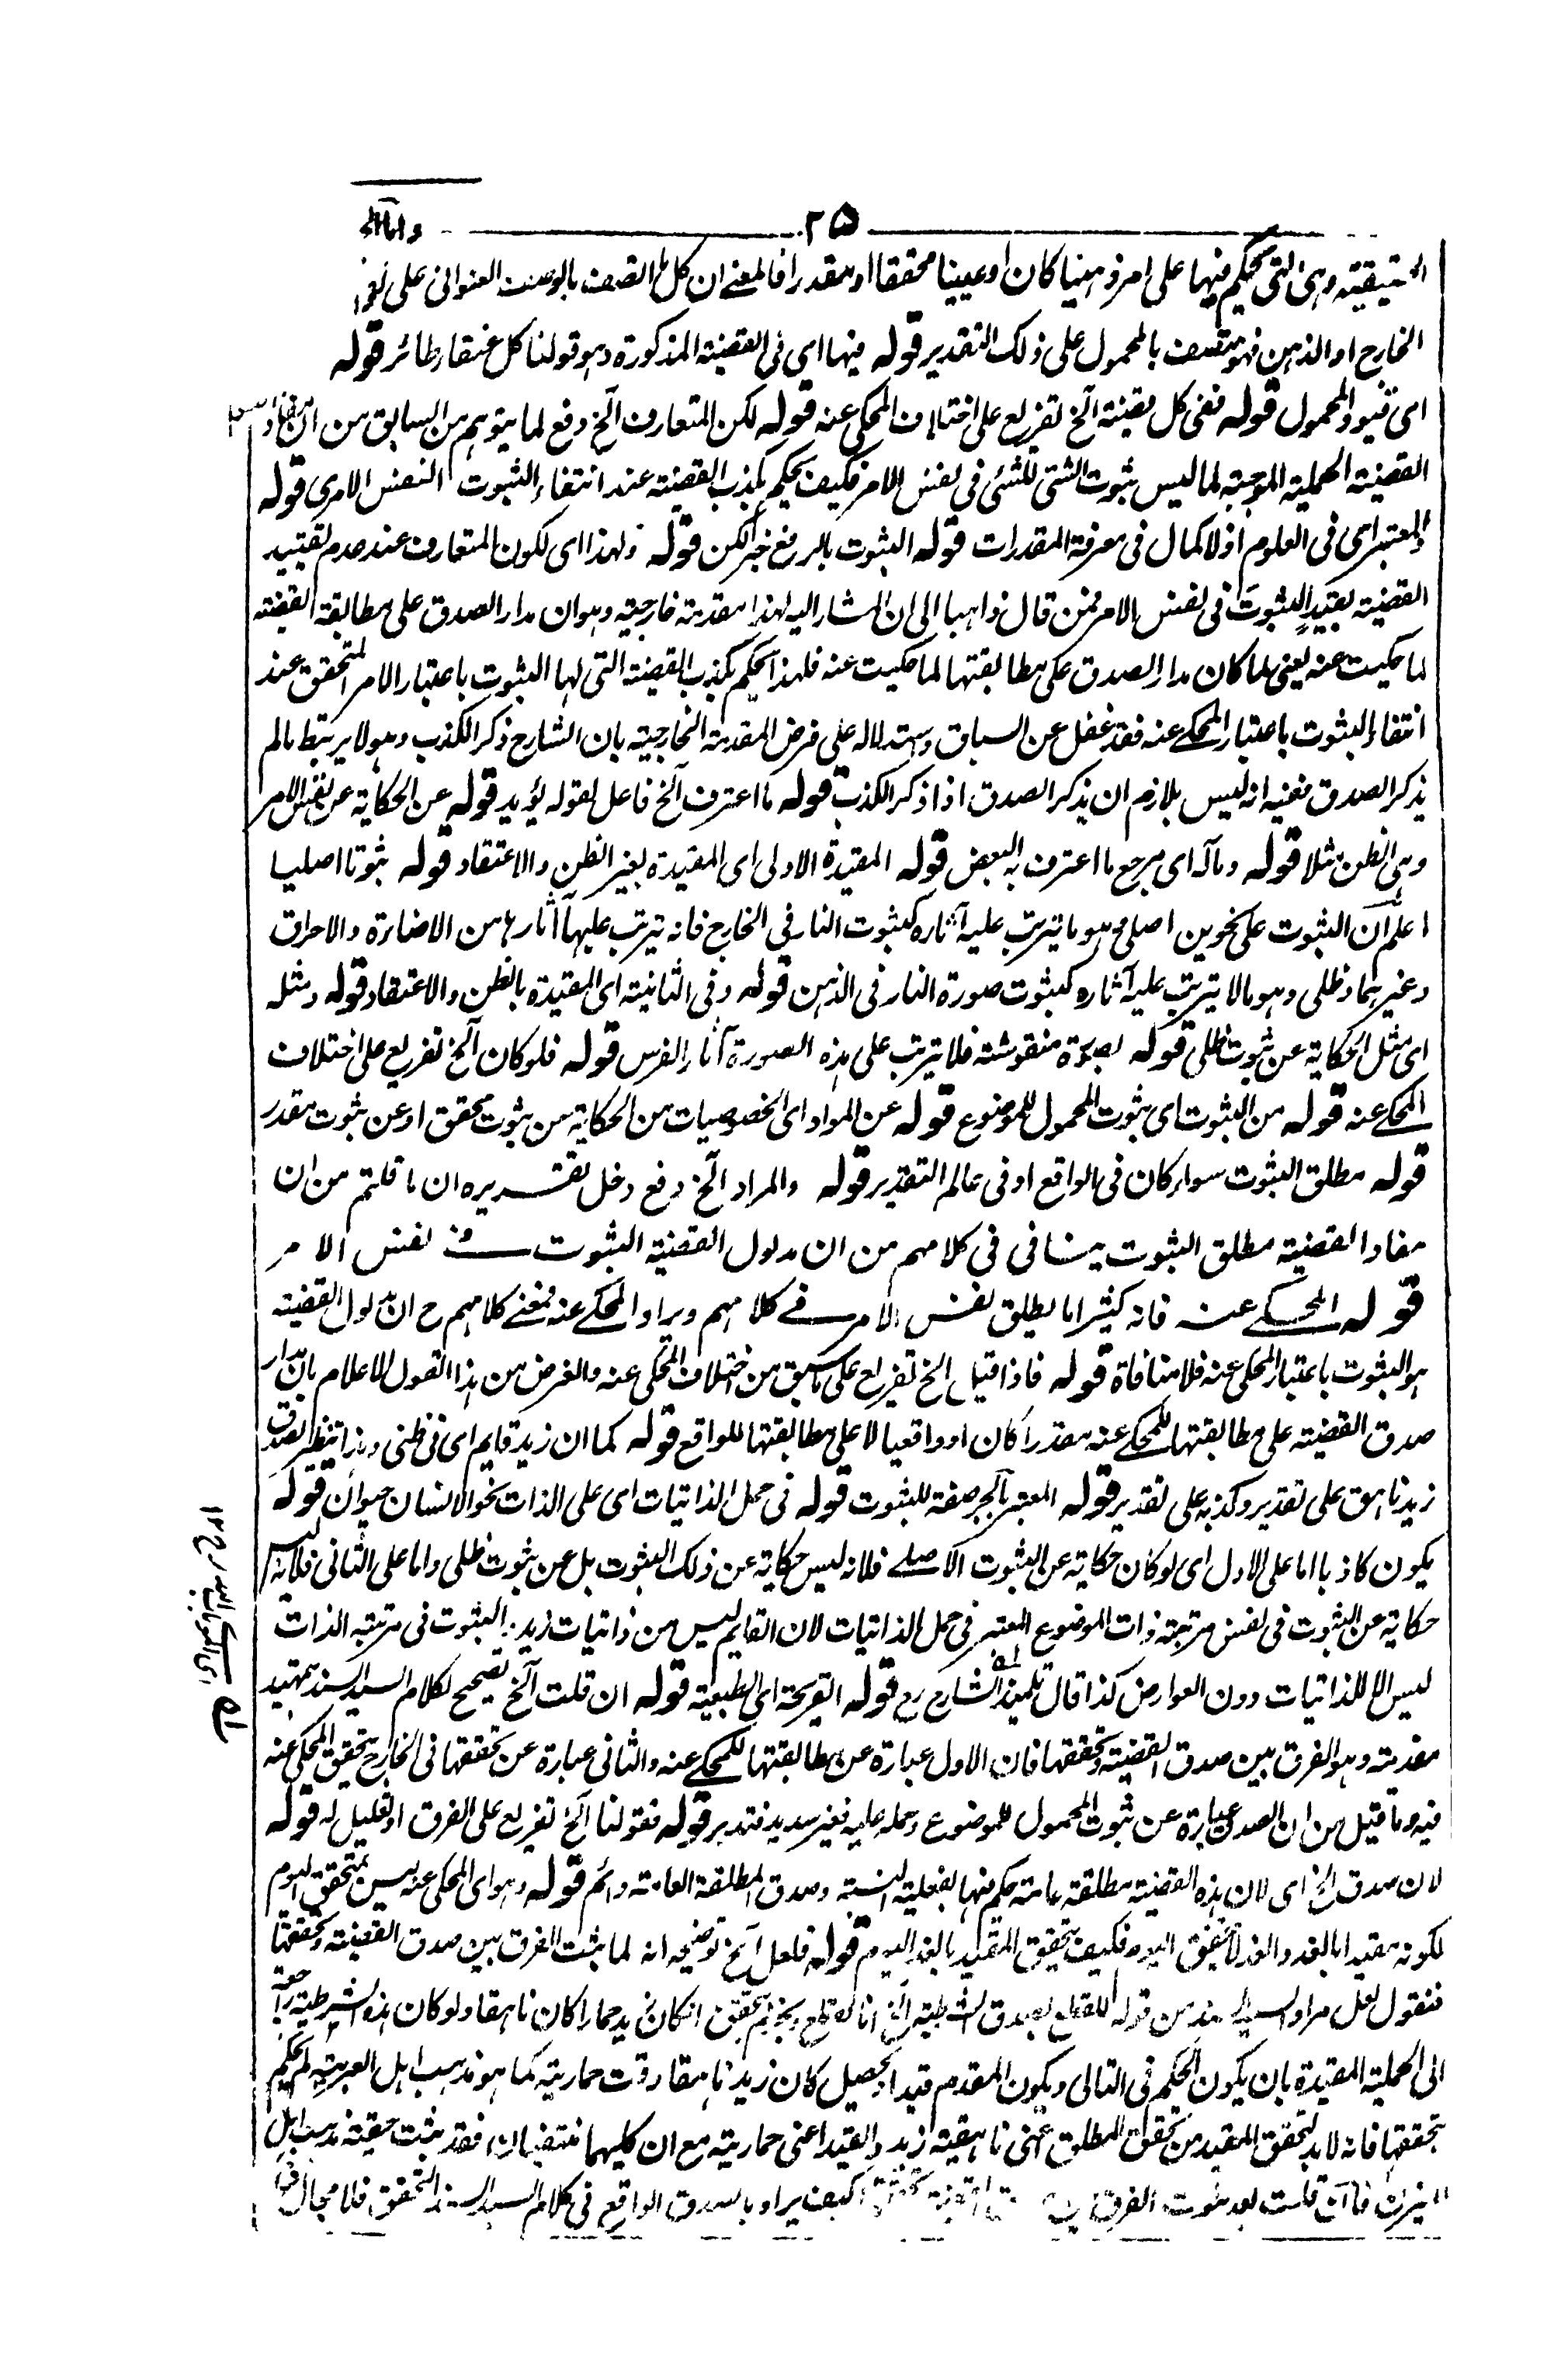 ۲۵
الحقيقية وهى التى يحكم فيها على امر ذهنيا كان او عينيا محققا او مقدرا فالمعنے ان كل ما اتصف بالوصف العنوانى على تقدير
الخارج او الذهن فهو متصف بالمحمول على ذلك التقدير قوله فيها اى فى القضية المذكورة وهو قولنا كل عنقاء طائر قوله
اى قيود المحمول قوله ففى كل قضية آلخ تفريع على اختلاف المحكى عنه قوله لكن المتعارف آلخ دفع لما يتوهم من السابق من ان مفاد
القضية الحملية الموجبة لما ليس ثبوت الشئ للشئ فى نفس الامر فكيف يحكم بكذب القضية عند انتفاء الثبوت النفس الامرى قوله
المعتبر اى فى العلوم اذ لا كمال فى معرفة المقدرات قوله الثبوت بالرفع خبر لكن قوله ولهذا اى لكون المتعارف عند عدم تقييد
القضية بقيد الثبوت فى نفس الامر فمن قال ذاهبا الى ان المشار اليه لهذا مقدمة خارجية وهو ان مدار الصدق على مطابقة القضية
لما حكيت عنه يعنى لما كان مدار الصدق على مطابقتها لما حكيت عنه فلهذا يحكم بكذب القضية التى لها الثبوت باعتبار الامر المتحقق عند
انتفاء الثبوت باعتبار المحكے عنه فقد غفل عن السباق واستدلاله على فرض المقدمة الخارجية بان الشارح ذكر الكذب وهو لا يرتبط ما لم
يذكر الصدق ففيه انه ليس بلازم ان يذكر الصدق اذا ذكر الكذب قوله ما اعترف آلخ فاعل لقوله يؤيد قوله عن الحكاية عن نفس الامر
وهى الظن مثلا قوله ومآله اى مرجع ما اعترف به البعض قوله المقيدة الاولى اى المقيدة بغير الظن والاعتقاد قوله ثبوتا اصليا
اعلم ان الثبوت على نحوين اصلى وهو ما يترتب عليه آثاره كثبوت النار فى الخارج فانه يترتب عليها آثارها من الاضاءة والاحراق
وغيرهما وظلى وهو ما لا يترتب عليه آثاره كثبوت صورة النار فى الذهن قوله وفى الثانية اى المقيدة بالظن والاعتقاد قوله ومثله
اى مثل الحكاية عن ثبوت ظلى قوله بصورة منقوشة فلا يترتب على هذه الصورة آثار الفرس قوله فلو كان آلخ تفريع على اختلاف
المحكے عنه قوله من الثبوت اى ثبوت المحمول للموضوع قوله عن المواد اى الخصوصيات من الحكاية من ثبوت محقق او عن ثبوت مقدر
قوله مطلق الثبوت سواء كان فى الواقع او فى عالم التقدير قوله والمراد آلخ دفع دخل تقريره ان ما قلتم من ان
مفاد القضية مطلق الثبوت ينافى فى كلامهم من ان مدلول القضية الثبوت فے نفس الامر
قوله المحكے عنه فانه كثيرا ما يطلق نفس الامر فے كلامهم ويراد المحكے عنه فمعنے كلامهم ح ان مدلول القضية
هو الثبوت باعتبار المحكى عنه فلا منافاة قوله فاذا قيل الخ تفريع على ما سبق من اختلاف المحكى عنه والغرض من هذا القول الاعلام بان مدار
صدق القضية على مطابقتها للمحكے عنه مقدرا كان او واقعيا لا على مطابقتها للواقع قوله كما ان زيد قايم اى فى ظنى وهذا تنظير لصدق
زيد ناهق على تقدير وكذبه على تقدير قوله المعتبر بالجر صفة للثبوت قوله فى حمل الذاتيات اى على الذات نحو الانسان حيوان قوله
يكون كاذبا اما على الاول اى لو كان حكاية عن الثبوت الاصلے فلانه ليس حكاية عن ذلك الثبوت بل عن ثبوت ظلى واما على الثانى فلانه ليس
حكاية عن الثبوت فى نفس مرتبة ذات الموضوع المعتبر فى حمل الذاتيات لان القايم ليس من ذاتيات زيد والثبوت فى مرتبة الذات
ليس الا للذاتيات دون العوارض كذا قال تلميذ الشارح رح قوله القريحة اى الطبيعة قوله ان قلت آلخ تصحيح لكلام السيد السند بتمهيد
مقدمة وهو الفرق بين صدق القضية وتحققها فان الاول عبارة عن مطابقتها للمحكے عنه والثانى عبارة عن تحققها فى الخارج بتحقق المحكى عنه
فيه وما قيل من ان الصدق عبارة عن ثبوت المحمول للموضوع وحمله عليه فغير سديد فتدبر قوله فقولنا آلخ تفريع على الفرق او تعليل له قوله
لان صدق الخ اى لان هذه القضية مطلقة عامة حكم فيها بفعلية النسبة وصدق المطلقة العامة دائم قوله وهو اى المحكى عنه ليس بمتحقق اليوم
لكونه مقيدا بالغد والغد لا يتحقق اليوم فكيف يتحقق المقيد بالغد اليوم قوله فلعل آلخ توضيحه انه لما ثبت الفرق بين صدق القضية وتحققها
فنقول لعل مراد السيد السند من قوله للقطع بصدق الشرطية آلخ انا لقطع ونجزم بتحقق ان كان زيد حمارا كان ناهقا ولو كان هذه الشرطية راجعة
الى الحملية المقيدة بان يكون الحكم فى التالى ويكون المقدم قيدا وتحصيل كان زيد ناهقا وقت حماريته كما هو مذهب اهل العربية لم يحكم
بتحققها فانه لا بد لتحقق المقيد من تحقق المطلق اعنى ناهقية زيد والقيد اعنى حماريته مع ان كليهما منتفيان فقد ثبت حقية مذهب اهل
الميزان فان قلت بعد ثبوت الفرق بين كيف يراد بالصدق الواقع فى كلام السيد السند التحقق قلنا مجال